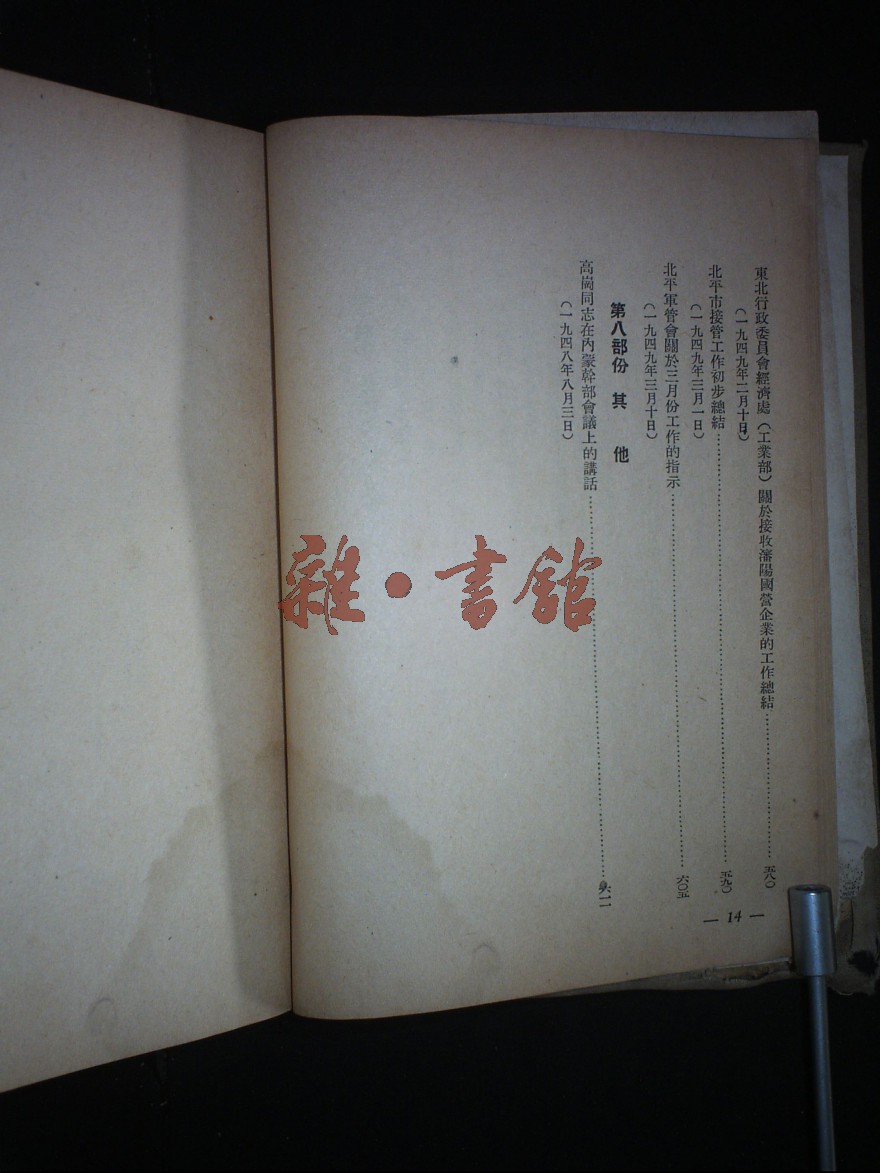 東北行政委員會經濟處（工業部）關於接收瀋陽國營企業的工作總結……五八〇
（一九四九年二月十日）
北平市接管工作初步總結……五九〇
（一九四九年三月一日）
北平軍管會關於三月份工作的指示……六〇五
（一九四九年三月十日）
第八部份 其 他
高崗同志在內蒙幹部會議上的講話……六一一
（一九四八年八月三日）
— 14 —
雜·書館